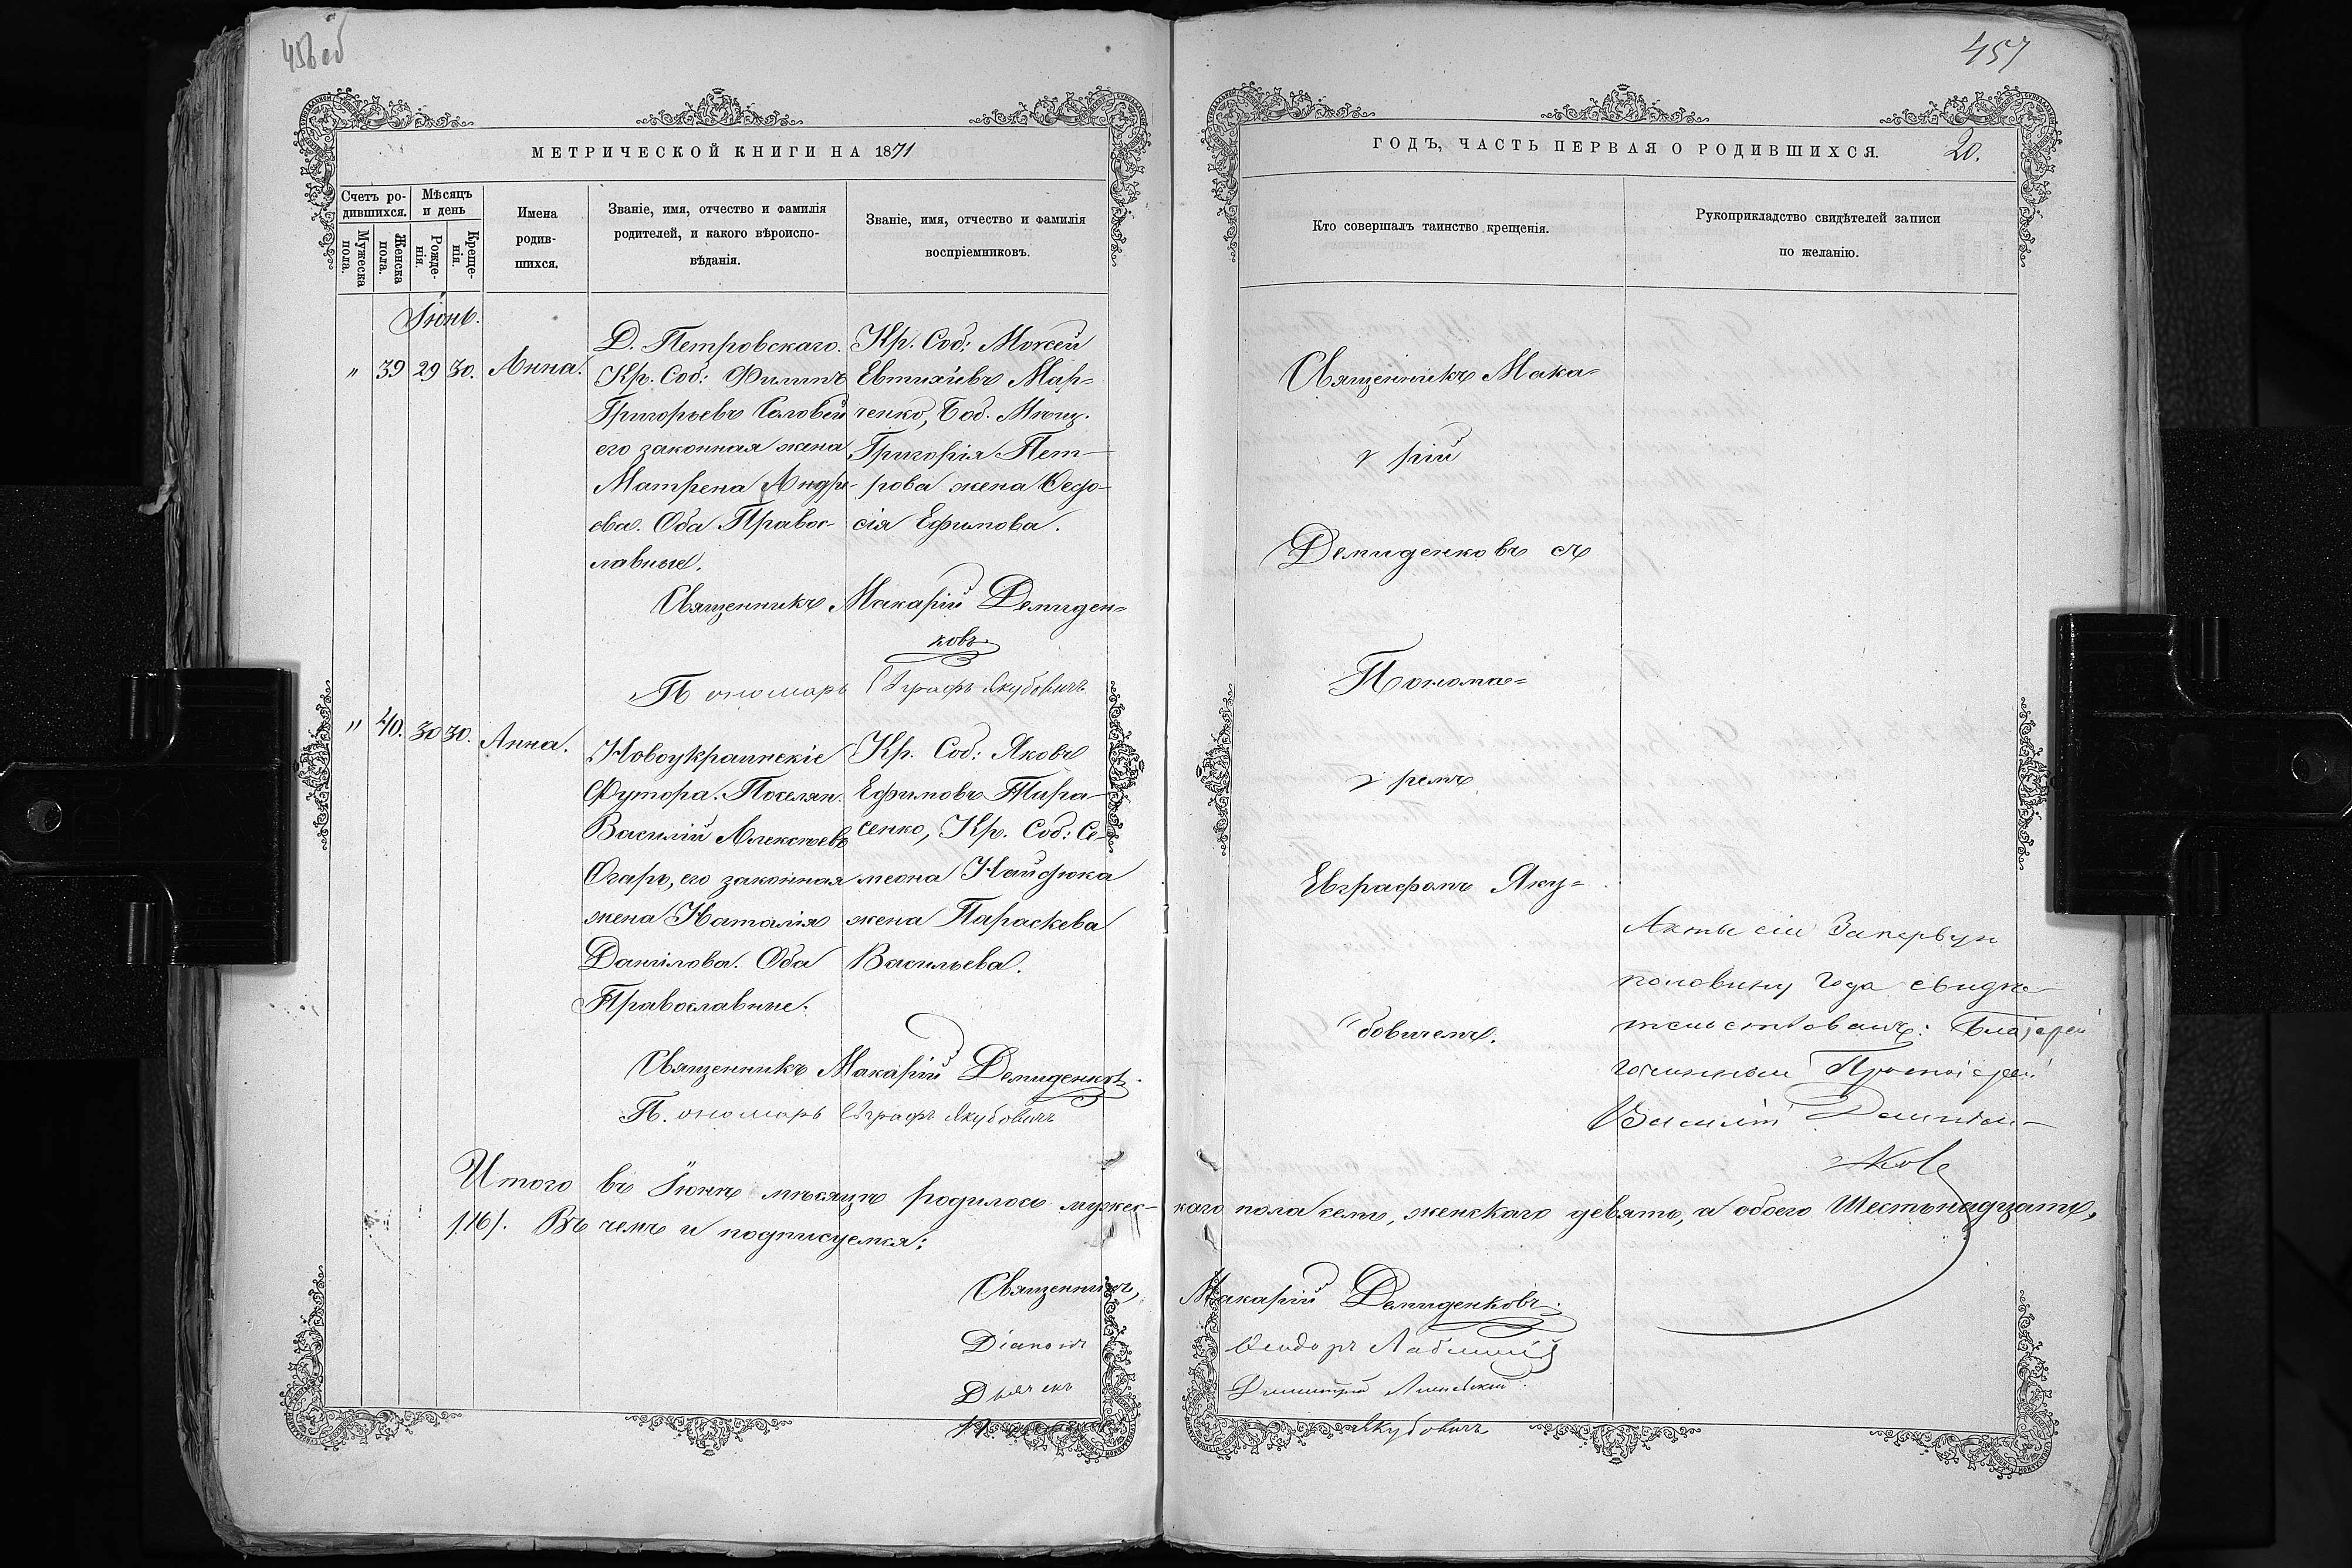 456 об
МЕТРИЧЕСКОЙ КНИГИ НА 1871
Счетъ ро-
дившихся.
Мѣсяцъ
и день
Мужеска
пола.
Женска
пола.
Рожде-
нія.
Креще-
нія.
Имена
родив-
шихся.
Званіе, имя, отчество и фамилія
родителей, и какого вѣроиспо-
вѣданія.
Званіе, имя, отчество и фамилія
воспріемниковъ.
Іюнь.
" 39 29 30. Анна.
Д. Петровскаго.
Кр. Соб: Филипъ
Григорьевъ Соловей
его законная жена
Матрена Андре-
ева. Оба Правос-
лавные.
Кр. Соб: Мокей
Евтихіевъ Мар=
ченко, Боб. Мѣщ.
Григорія Пет-
рова жена Ѳеодо-
сія Ефимова.
Священникъ Макарій Демиден=
ковъ.
Пономарь Евграфъ Якубовичъ
" 40. 30 30. Анна.
Новоукраинскіе
Футора. Поселян.
Василій Алексѣевъ
Огарь, его законная
жена Наталія
Данилова. Оба
Православные.
Кр. Соб: Яковъ
Ефимовъ Тара-
сенко, Кр. Соб: Се-
меона Найдюка
жена Параскева
Васильева.
Священникъ Макарій Демиденковъ.
Пономарь Евграфъ Якубовичъ
Итого въ Іюнѣ мѣсяцѣ родилось мужес-
/16/. Въ чемъ и подписуемся:
Священникъ,
Діаконъ
Дьячекъ
457
ГОДЪ, ЧАСТЬ ПЕРВАЯ О РОДИВШИХСЯ.
20.
Кто совершалъ таинство крещенія.
Рукоприкладство свидѣтелей записи
по желанію.
Священникъ Мака=
рій
Демиденковъ съ
Понома=
ремъ
Евграфомъ Яку=
бовичемъ.
Акты сіи за первую
половину года свидѣ-
тельствовалъ: Благо
чинный Протоіерей
Василій Демиден-
ковъ
каго пола семь, женскаго девять, а обоего Шестьнадцать,
Макарій Демиденковъ.
Ѳеодоръ
Димитрій
Якубовичъ